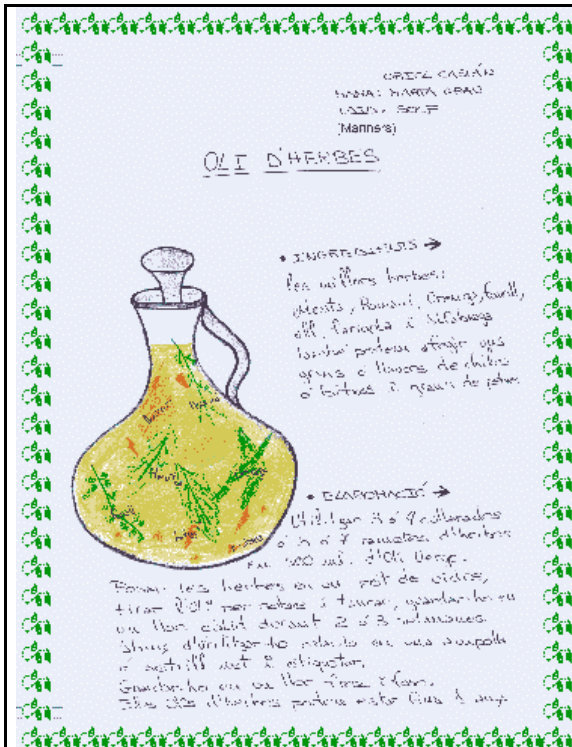 ORIOL CASIÁN
MAMA: MARTA GRAU
(Manners)
OLI D'HERBES
• INGREDIENTS →
Les millors herbes:
Menta, Romaní, Orenga, Fonoll,
all, Farigola i Alfàbrega
també podem afegir uns
grans o llavors de
o bitxos i grans de pebre
• ELABORACIÓ →
Utilitzar 3 ó 4 cullerades
o 3 ó 4 rametes d'herbes
en 500 ml. d'Oli Verge.
Posar les herbes en un pot de vidre,
tirar l'oli per sobre i tancar, guardar-ho en
un lloc càlid durant 2 ó 3 setmanes.
Abans d'utilitzar-ho colar-lo en una ampolla
o setrill net i etiquetar.
Guardar-ho en un lloc fresc i fosc.
Els olis d'herbes poden estar fins 1 any.